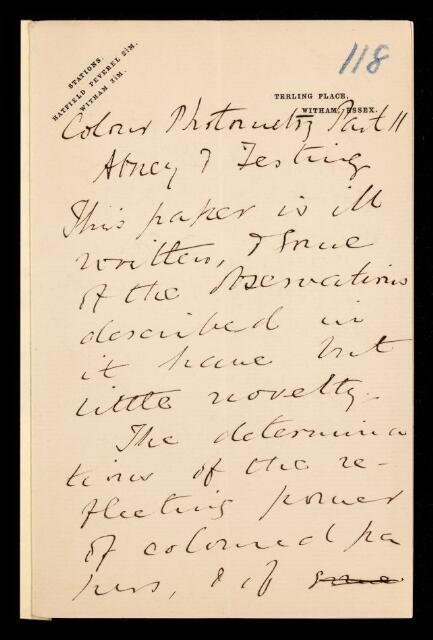 118
STATIONS.
HATFIELD PEVEREL 2½M.
WITHAM 3½M.
TERLING PLACE,
WITHAM, ESSEX.
Colour Photometry Part II
Abney & Festing
This paper is ill
written, & some
of the observations
described in
it have but
little novelty.
The determina
tions of the re-
flecting power
of coloured pa
pers, & of some